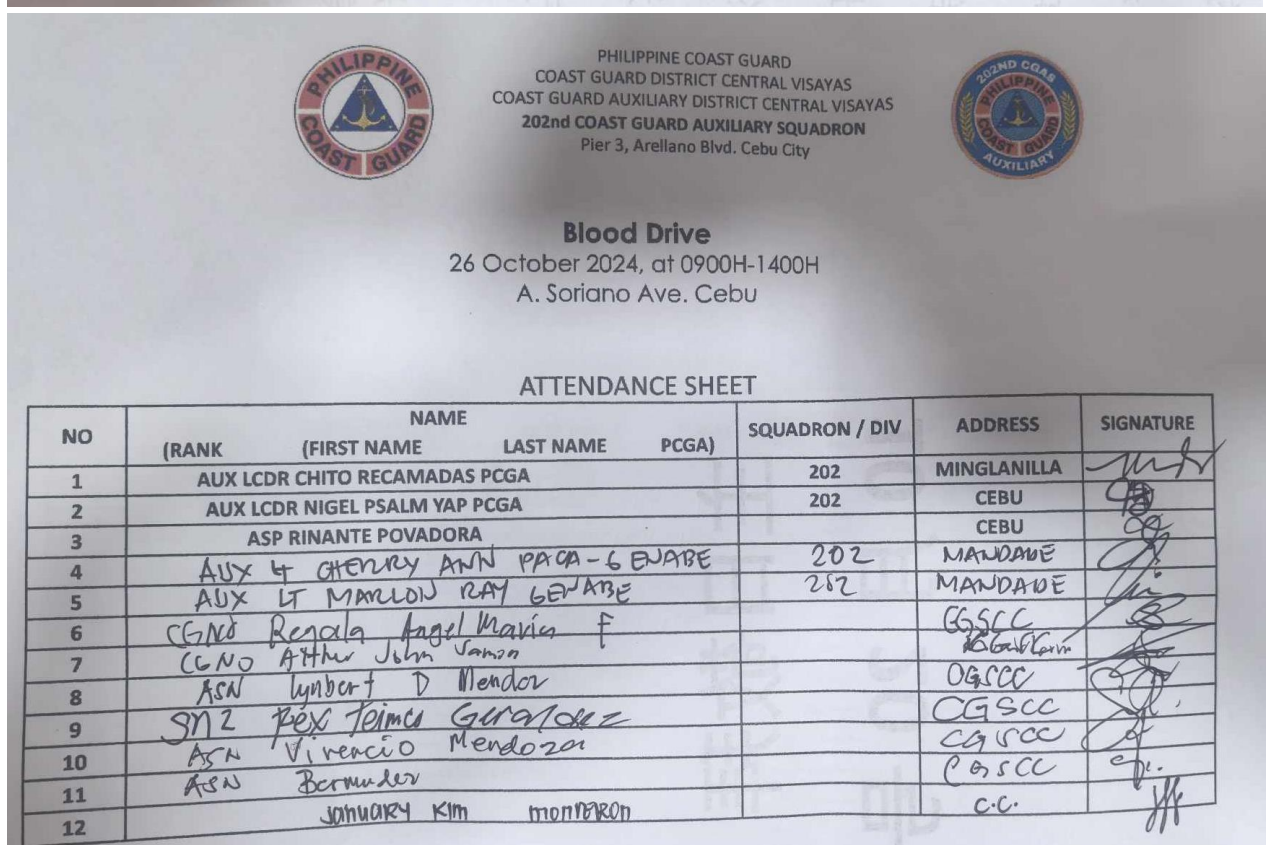 PHILIPPINE COAST GUARD
PHILIPPINE COAST GUARD
COAST GUARD DISTRICT CENTRAL VISAYAS
COAST GUARD AUXILIARY DISTRICT CENTRAL VISAYAS
202nd COAST GUARD AUXILIARY SQUADRON
Pier 3, Arellano Blvd. Cebu City
202ND CGAS
PHILIPPINE COAST GUARD
AUXILIARY
Blood Drive
26 October 2024, at 0900H-1400H
A. Soriano Ave. Cebu
ATTENDANCE SHEET
NO NAME SQUADRON / DIV ADDRESS SIGNATURE
(RANK (FIRST NAME LAST NAME PCGA)
1 AUX LCDR CHITO RECAMADAS PCGA 202 MINGLANILLA
2 AUX LCDR NIGEL PSALM YAP PCGA 202 CEBU
3 ASP RINANTE POVADORA CEBU
4 AUX LT CHERRY ANN PACA-GENABE 202 MANDAUE
5 AUX LT MARLON RAY GENABE 202 MANDAUE
6 Regala Angel Mavin F CGSCC
7 John
8 ASN Lynbert D Mendor CGSCC
9 SN2 Rex CGSCC
10 ASN Vivencio Mendoza CGSCC
11 ASN Bermudez CGSCC
12 January Kim C.C.